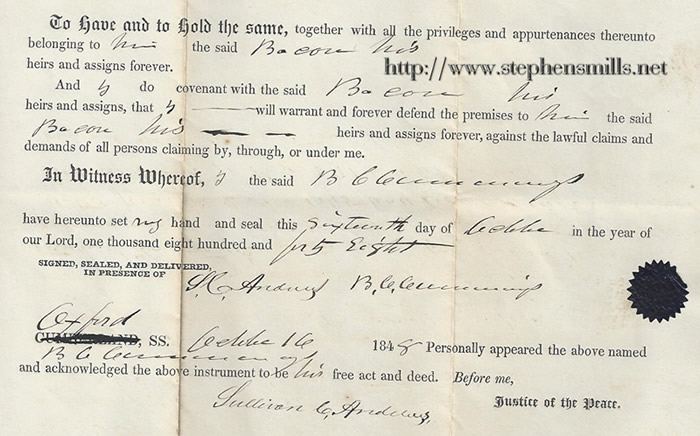 To Have and to Hold the same, together with all the privileges and appurtenances thereunto
belonging to him the said Bacon his
heirs and assigns forever.
http://www.stephensmills.net
And I do covenant with the said Bacon his
heirs and assigns, that I will warrant and forever defend the premises to him the said
Bacon his heirs and assigns forever, against the lawful claims and
demands of all persons claiming by, through, or under me.
In Witness Whereof, I the said B C Cummings
have hereunto set my hand and seal this sixteenth day of Octobe in the year of
our Lord, one thousand eight hundred and forty Eight
SIGNED, SEALED, AND DELIVERED,
IN PRESENCE OF
S. C. Andrews B. C. Cummings
Oxford
CUMBERLAND, SS. Octobe 16 1848 Personally appeared the above named
B C Cummings
and acknowledged the above instrument to be his free act and deed. Before me,
Sullivan C. Andrews, Justice of the Peace.